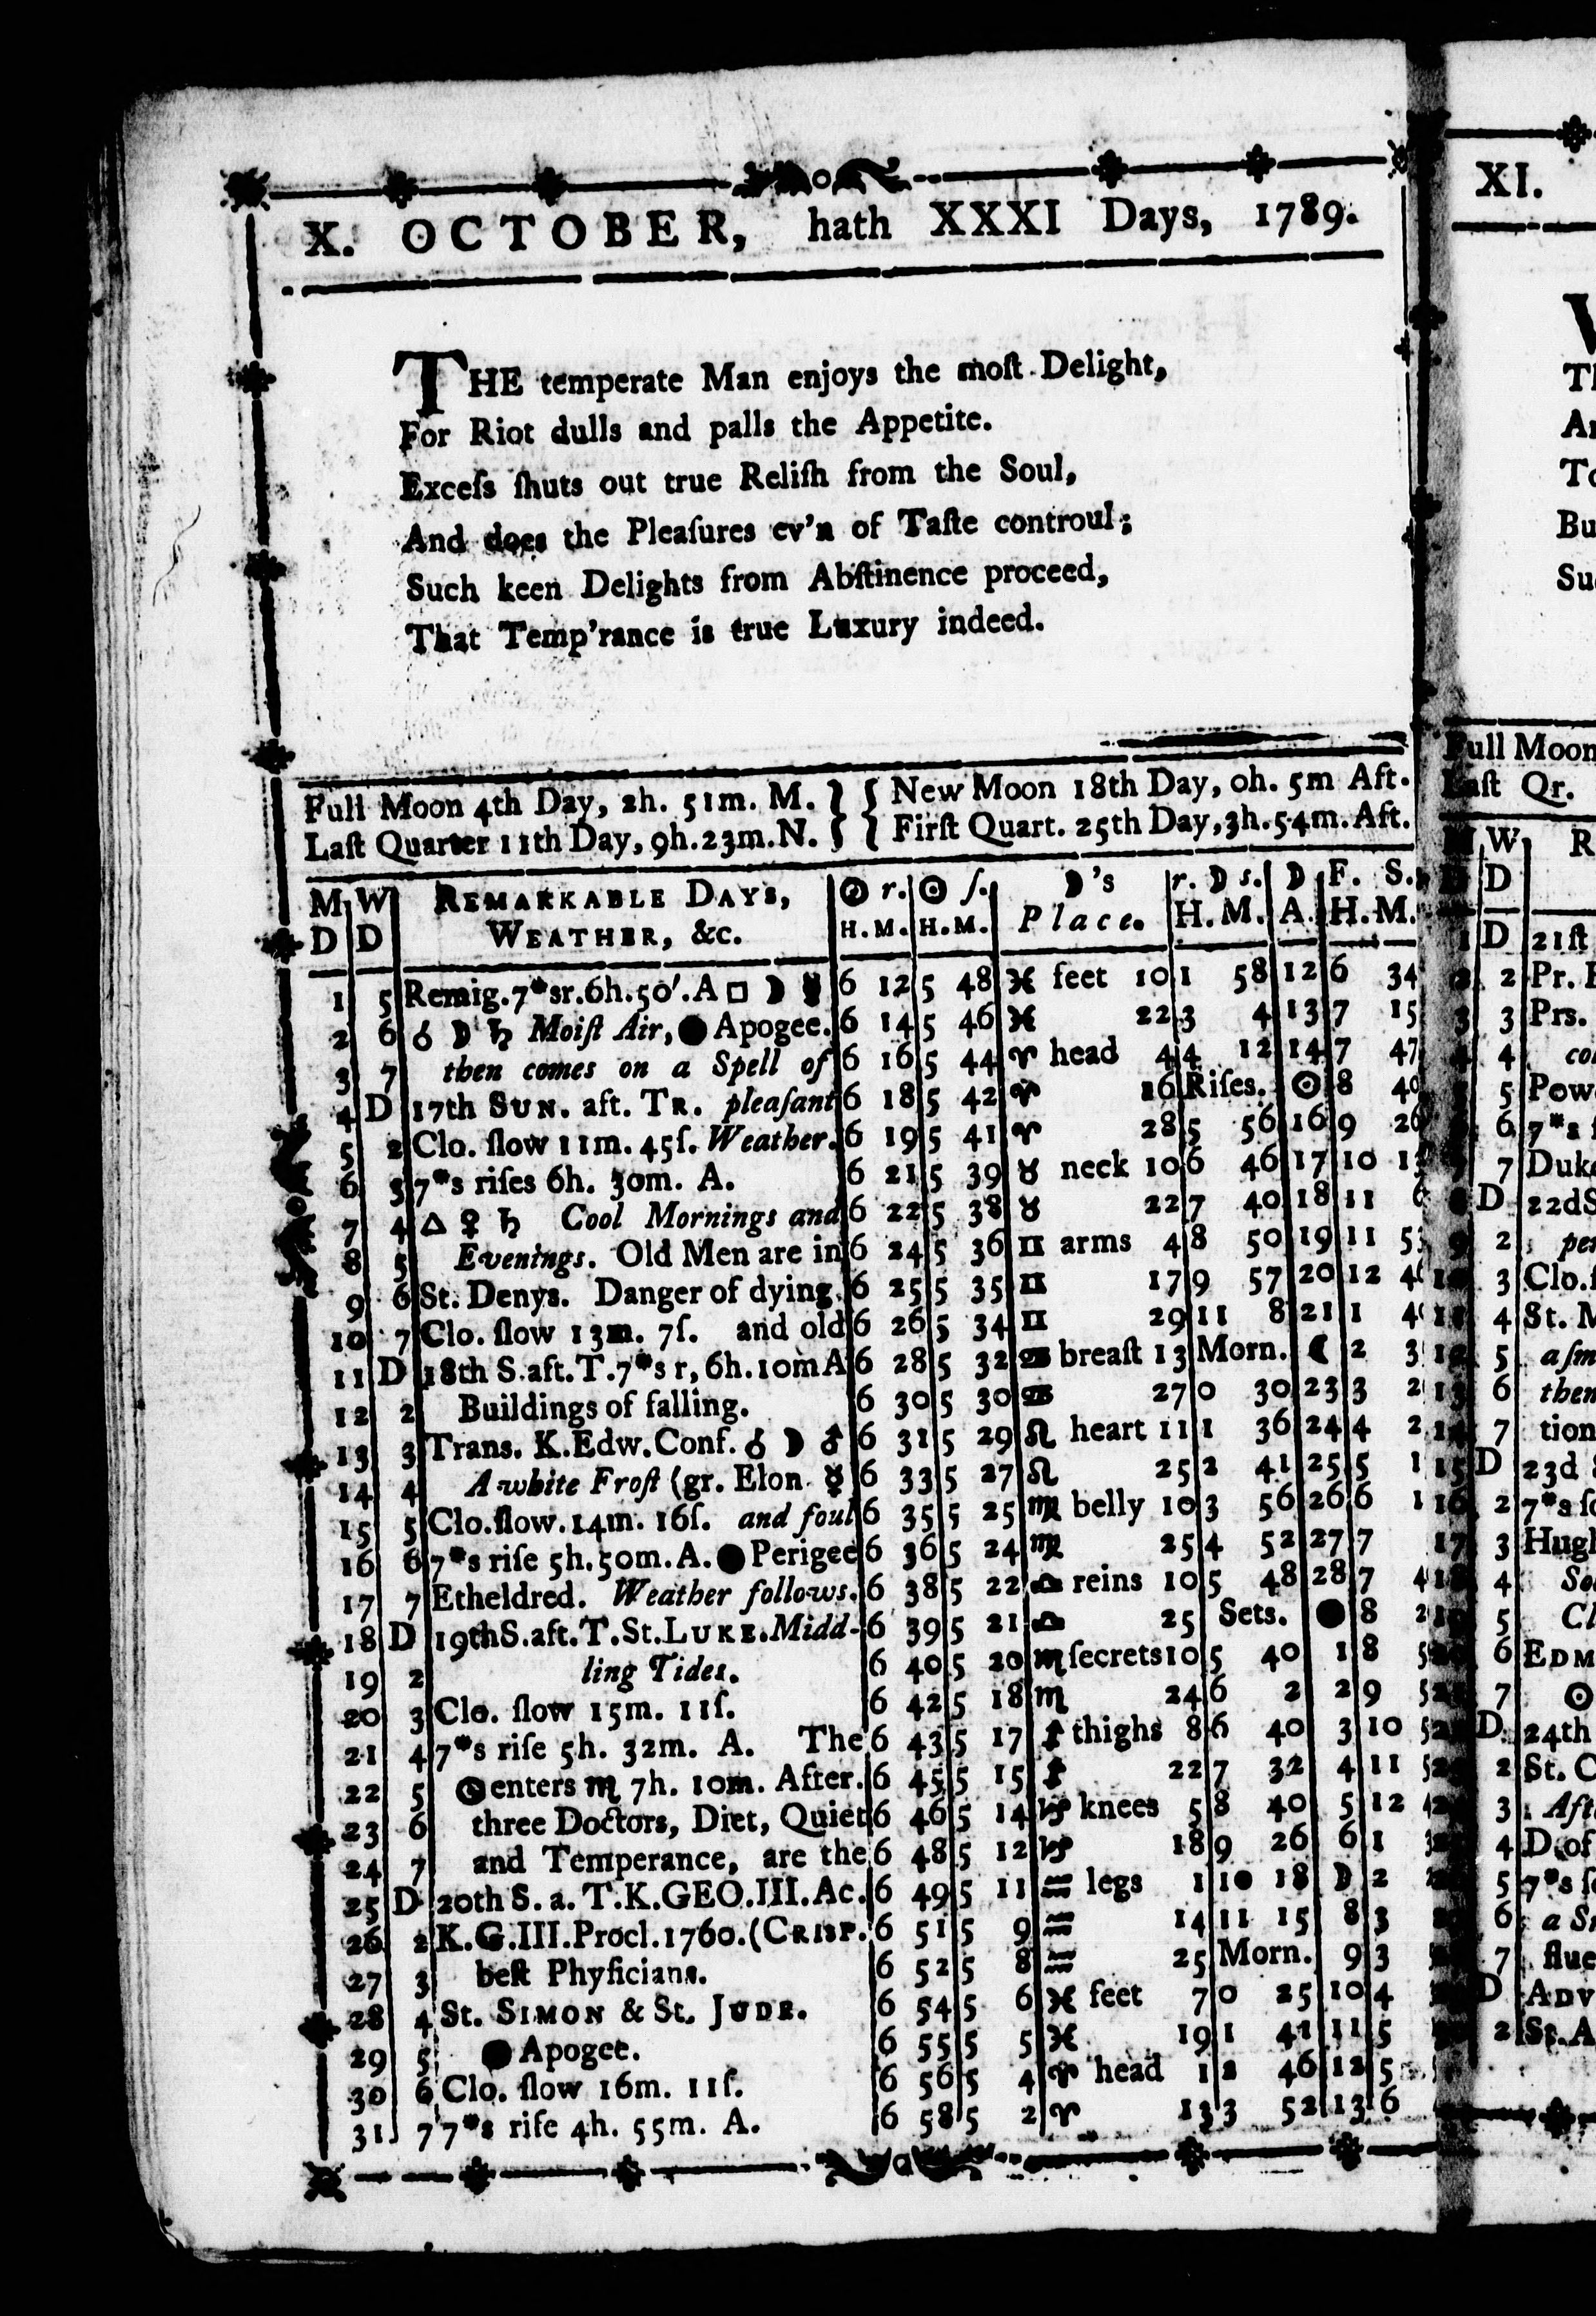 X. OCTOBER, hath XXXI Days, 1789.
THE temperate Man enjoys the moſt Delight,
For Riot dulls and palls the Appetite.
Exceſs ſhuts out true Reliſh from the Soul,
And does the Pleaſures ev'n of Taſte controul;
Such keen Delights from Abſtinence proceed,
That Temp'rance is true Luxury indeed.
Full Moon 4th Day, 2h. 51m. M. } { New Moon 18th Day, 0h. 5m Aft.
Laſt Quarter 11th Day, 9h.23m.N. } { Firſt Quart. 25th Day, 3h. 54m. Aft.
M W REMARKABLE DAYS, ☉ r. ☉ ſ. ☽'s r. ☽ s. ☽ F. S.
D D WEATHER, &c. H.M. H.M. Place. H. M. A. H. M.
1 5 Remig. 7*sr.6h.50'.A □ ☽ ☿ 6 12 5 48 ♓ feet 10 1 58 12 6 34
2 6 ☌ ☽ ♄ Moiſt Air, ● Apogee. 6 14 5 46 ♓ 22 3 4 13 7 15
3 7 then comes on a Spell of 6 16 5 44 ♈ head 4 4 12 14 7 47
4 D 17th SUN. aft. TR. pleaſant 6 18 5 42 ♈ 16 Riſes. ☉ 8 40
5 2 Clo. ſlow 11m. 45ſ. Weather. 6 19 5 41 ♈ 28 5 56 16 9 26
6 3 7*s riſes 6h. 30m. A. 6 21 5 39 ♉ neck 10 6 46 17 10 1
7 4 △ ♀ ♄ Cool Mornings and 6 22 5 38 ♉ 22 7 40 18 11 6
8 5 Evenings. Old Men are in 6 24 5 36 ♊ arms 4 8 50 19 11 5
9 6 St. Denys. Danger of dying, 6 25 5 35 ♊ 17 9 57 20 12 4
10 7 Clo. ſlow 13m. 7ſ. and old 6 26 5 34 ♊ 29 11 8 21 1 4
11 D 18th S.aft.T.7*s r, 6h.10mA 6 28 5 32 ♋ breaſt 13 Morn. ☾ 2 3
12 2 Buildings of falling. 6 30 5 30 ♋ 27 0 30 23 3 2
13 3 Trans. K.Edw.Conf. ☌ ☽ ♂ 6 31 5 29 ♌ heart 11 1 36 24 4 2
14 4 A white Froſt (gr. Elon. ☿ 6 33 5 27 ♌ 25 2 41 25 5 1
15 5 Clo.ſlow.14m. 16ſ. and foul 6 35 5 25 ♍ belly 10 3 56 26 6 1
16 6 7*s riſe 5h.50m.A. ● Perigee 6 36 5 24 ♍ 25 4 52 27 7
17 7 Etheldred. Weather follows. 6 38 5 22 ♎ reins 10 5 48 28 7 4
18 D 19thS.aft.T.St.LUKE. Midd- 6 39 5 21 ♎ 25 Sets. ● 8 2
19 2 ling Tides. 6 40 5 20 ♏ ſecrets 10 5 40 1 8 5
20 3 Clo. ſlow 15m. 11ſ. 6 42 5 18 ♏ 24 6 2 2 9 5
21 4 7*s riſe 5h. 32m. A. The 6 43 5 17 ♐ thighs 8 6 40 3 10 5
22 5 ☉ enters ♏ 7h. 10m. After. 6 45 5 15 ♐ 22 7 32 4 11 5
23 6 three Doctors, Diet, Quiet 6 46 5 14 ♑ knees 5 8 40 5 12
24 7 and Temperance, are the 6 48 5 12 ♑ 18 9 26 6 1
25 D 20th S. a. T.K.GEO.III.Ac. 6 49 5 11 ♒ legs 1 10 18 ☽ 2
26 2 K.G.III.Procl.1760.(CRISP. 6 51 5 9 ♒ 14 11 15 8 3
27 3 beſt Phyſicians. 6 52 5 8 ♒ 25 Morn. 9 3
28 4 St. SIMON & St. JUDE. 6 54 5 6 ♓ feet 7 0 25 10 4
29 5 ● Apogee. 6 55 5 5 ♓ 19 1 41 11 5
30 6 Clo. ſlow 16m. 11ſ. 6 56 5 4 ♈ head 1 2 46 12 5
31 7 7*s riſe 4h. 55m. A. 6 58 5 2 ♈ 13 3 52 13 6
XI.
Full Moon
Laſt Qr.
W R
D
D 21ſt
2 Pr.
3 Prs.
4 co
5 Pow
6 7*s
7 Duk
D 22d S
2 per
3 Clo.
4 St. M
5 a ſm
6 then
7 tion
D 23d
2 7*s ſ
3 Hugh
4 Se
5 Cl
6 EDM
7 ☉
D 24th
2 St. C
3 Aft
4 D of
5 7*s ſ
6 a S
7 flue
D ADV
2 St. A